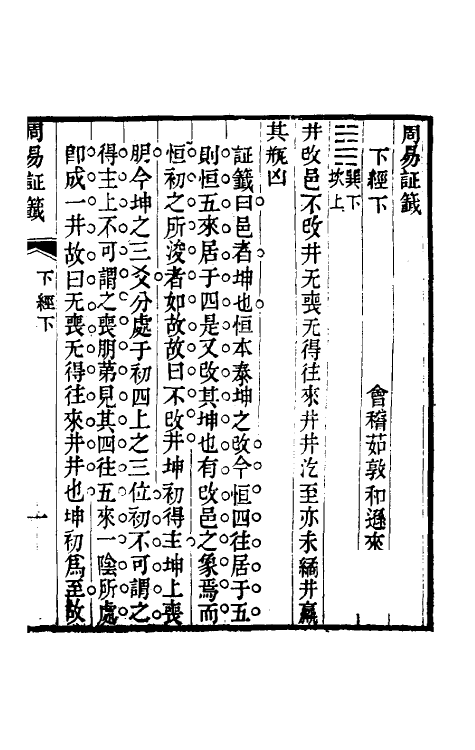 周易証籤
下經下
會稽茹敦和遜來
䷯巽下
坎上
井改邑不改井无喪无得往來井井汔至亦未繘井羸
其瓶凶
証籤曰邑者坤也恒本泰坤之改今恒四往居于五
則恒五來居于四是又改其坤也有改邑之象焉而
恒初之所浚者如故故曰不改井坤初得主坤上喪
朋今坤之三爻分處于初四上之三位初不可謂之
得主上不可謂之喪朋苐見其四往五來一陰所處
卽成一井故曰无喪无得往來井井也坤初爲至故
周易証籤
下經下
一